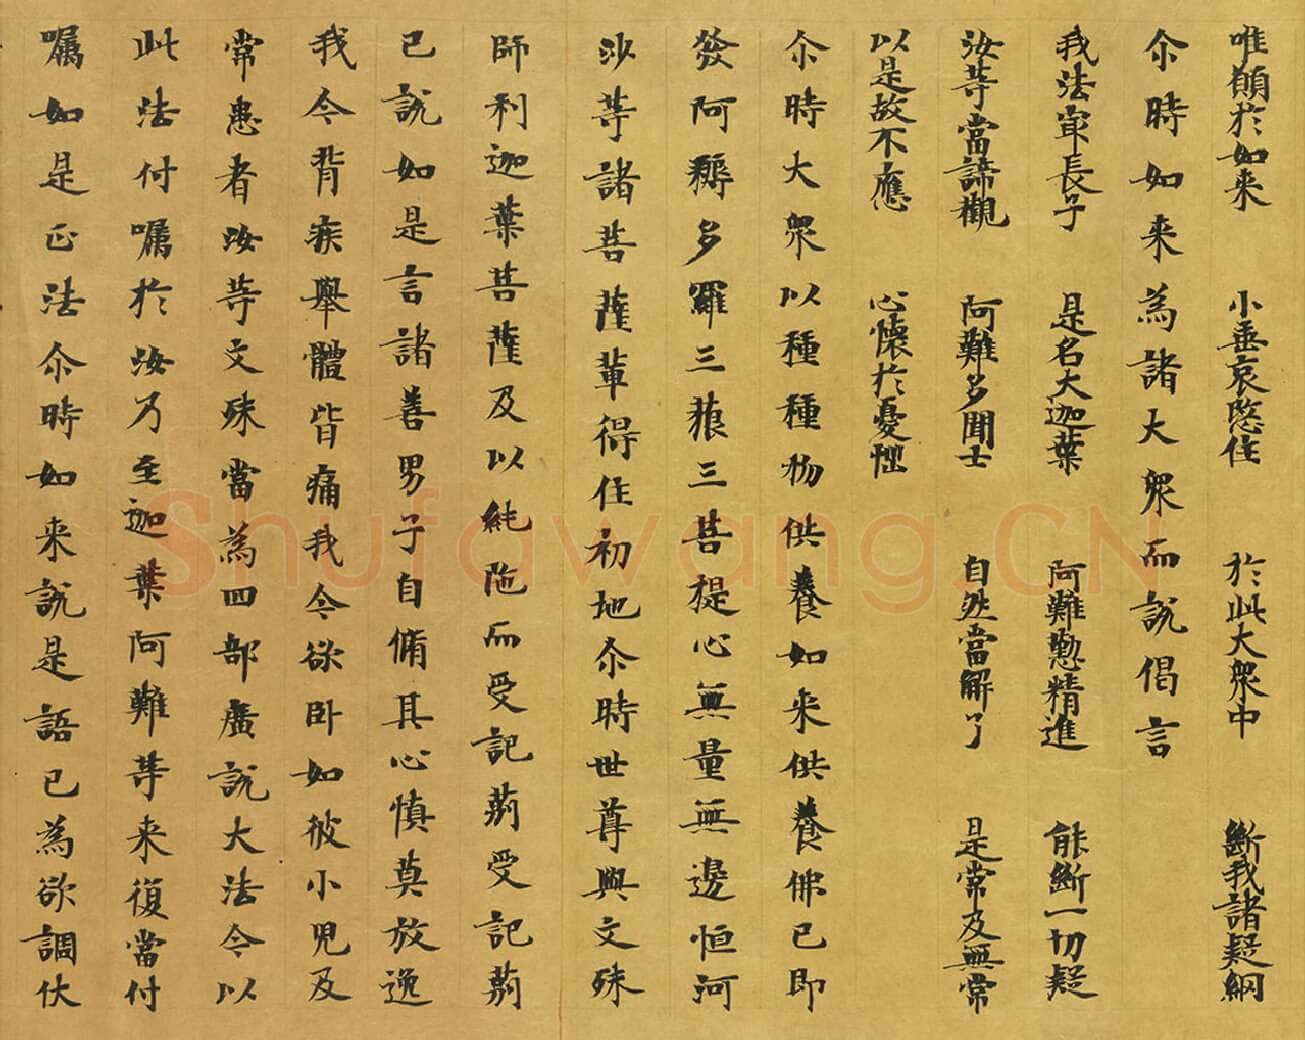 唯願於如来　小垂哀愍住　於此大眾中　斷我諸疑網
尒時如来為諸大眾而說偈言
我法㝡長子　是名大迦葉　阿難懃精進　能斷一切疑
汝等當諦觀　阿難多聞士　自然當解了　是常及無常
以是故不應　心懷於憂惱
尒時大眾以種種物供養如来供養佛已即
發阿耨多羅三藐三菩提心無量無邊恒河
沙等諸菩薩輩得住初地尒時世尊與文殊
師利迦葉菩薩及以純陁而受記莂受記莂
已說如是言諸善男子自脩其心慎莫放逸
我今背疾舉體皆痛我今欲卧如彼小兒及
常患者汝等文殊當為四部廣說大法今以
此法付囑於汝乃至迦葉阿難等来復當付
囑如是正法尒時如来說是語已為欲調伏
Shufawang.CN